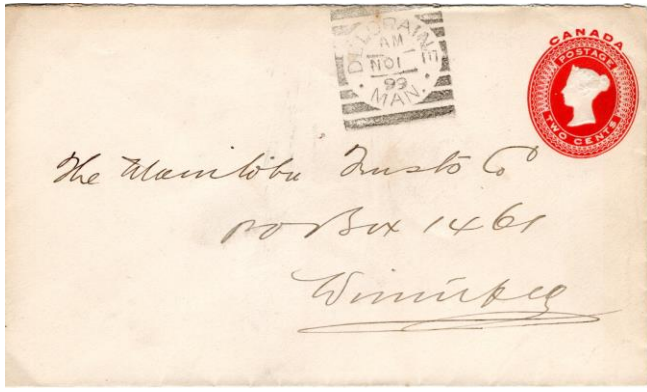 DELORAINE
AM
NO 1
99
MAN.
CANADA
POSTAGE
TWO CENTS
The Manitoba Trusts Co
PO Box 1461
Winnipeg